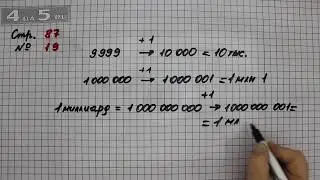 4 A 5
Стр. 87
№ 19
+1
9999 → 10 000 = 10 тыс.
+1
1000 000 → 1000 001 = 1 млн 1
+1
1 миллиард = 1 000 000 000 → 1000 000 001 =
= 1 мл